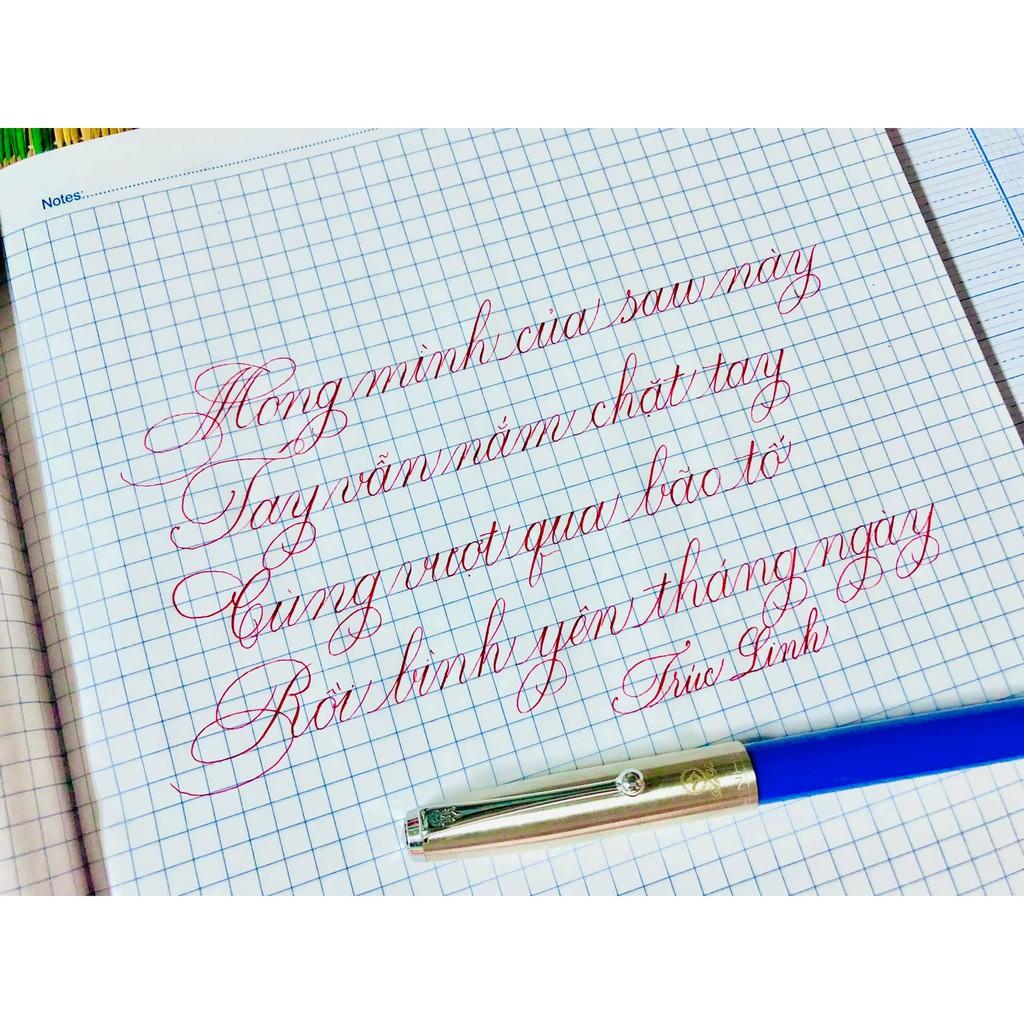 Notes:
Mong mình của sau này
Tay vẫn nắm chặt tay
Cùng vượt qua bão tố
Rồi bình yên tháng ngày
Trúc Linh